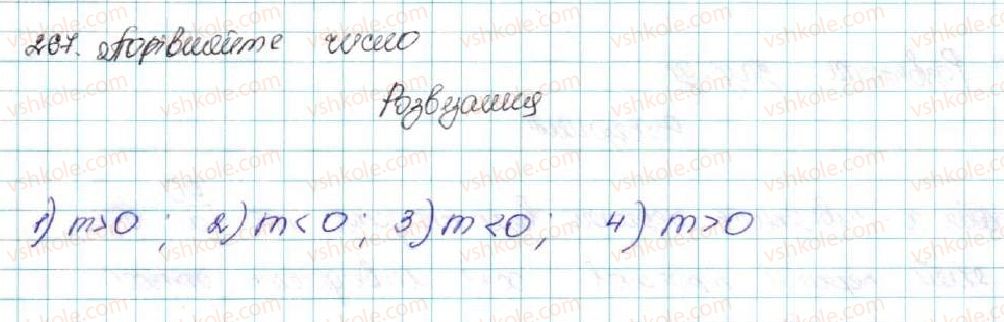 267. Порівняйте число
Розв'язання
1) m>0 ; 2) m<0 ; 3) m<0 ; 4) m>0